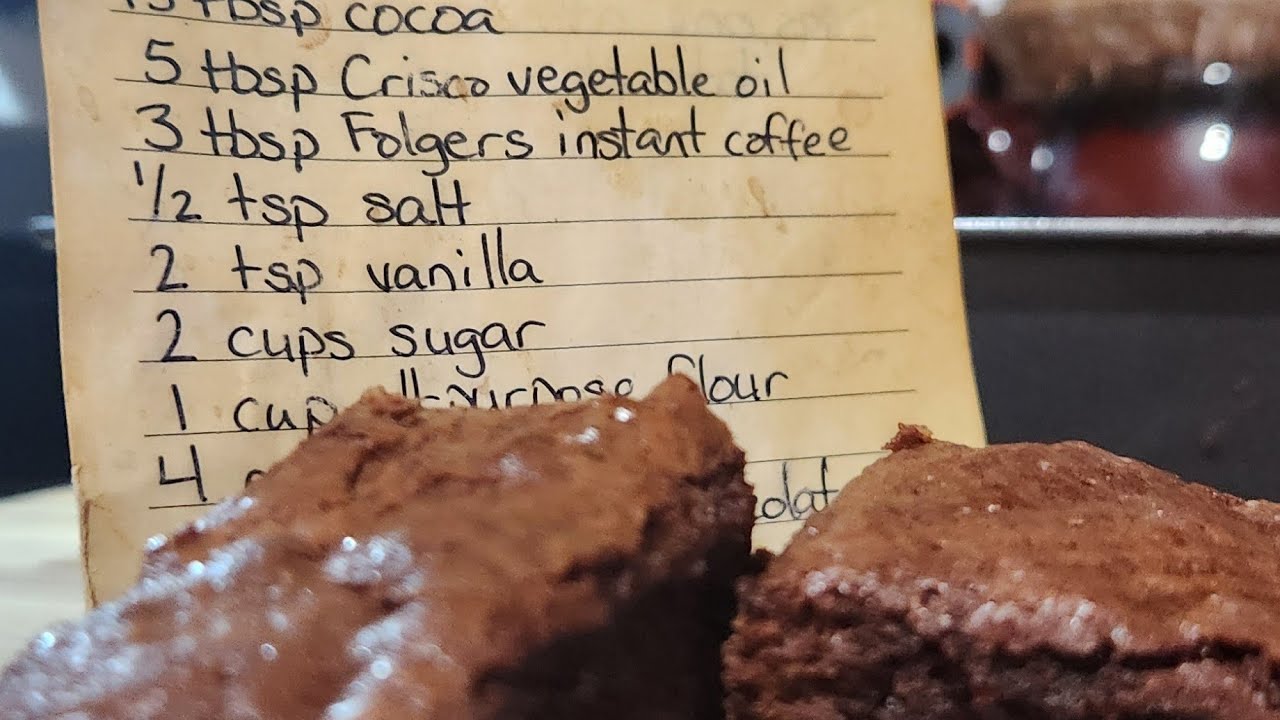 tbsp cocoa
5 tbsp Crisco vegetable oil
3 tbsp Folgers instant coffee
1/2 tsp salt
2 tsp vanilla
2 cups sugar
1 cup all-purpose flour
4